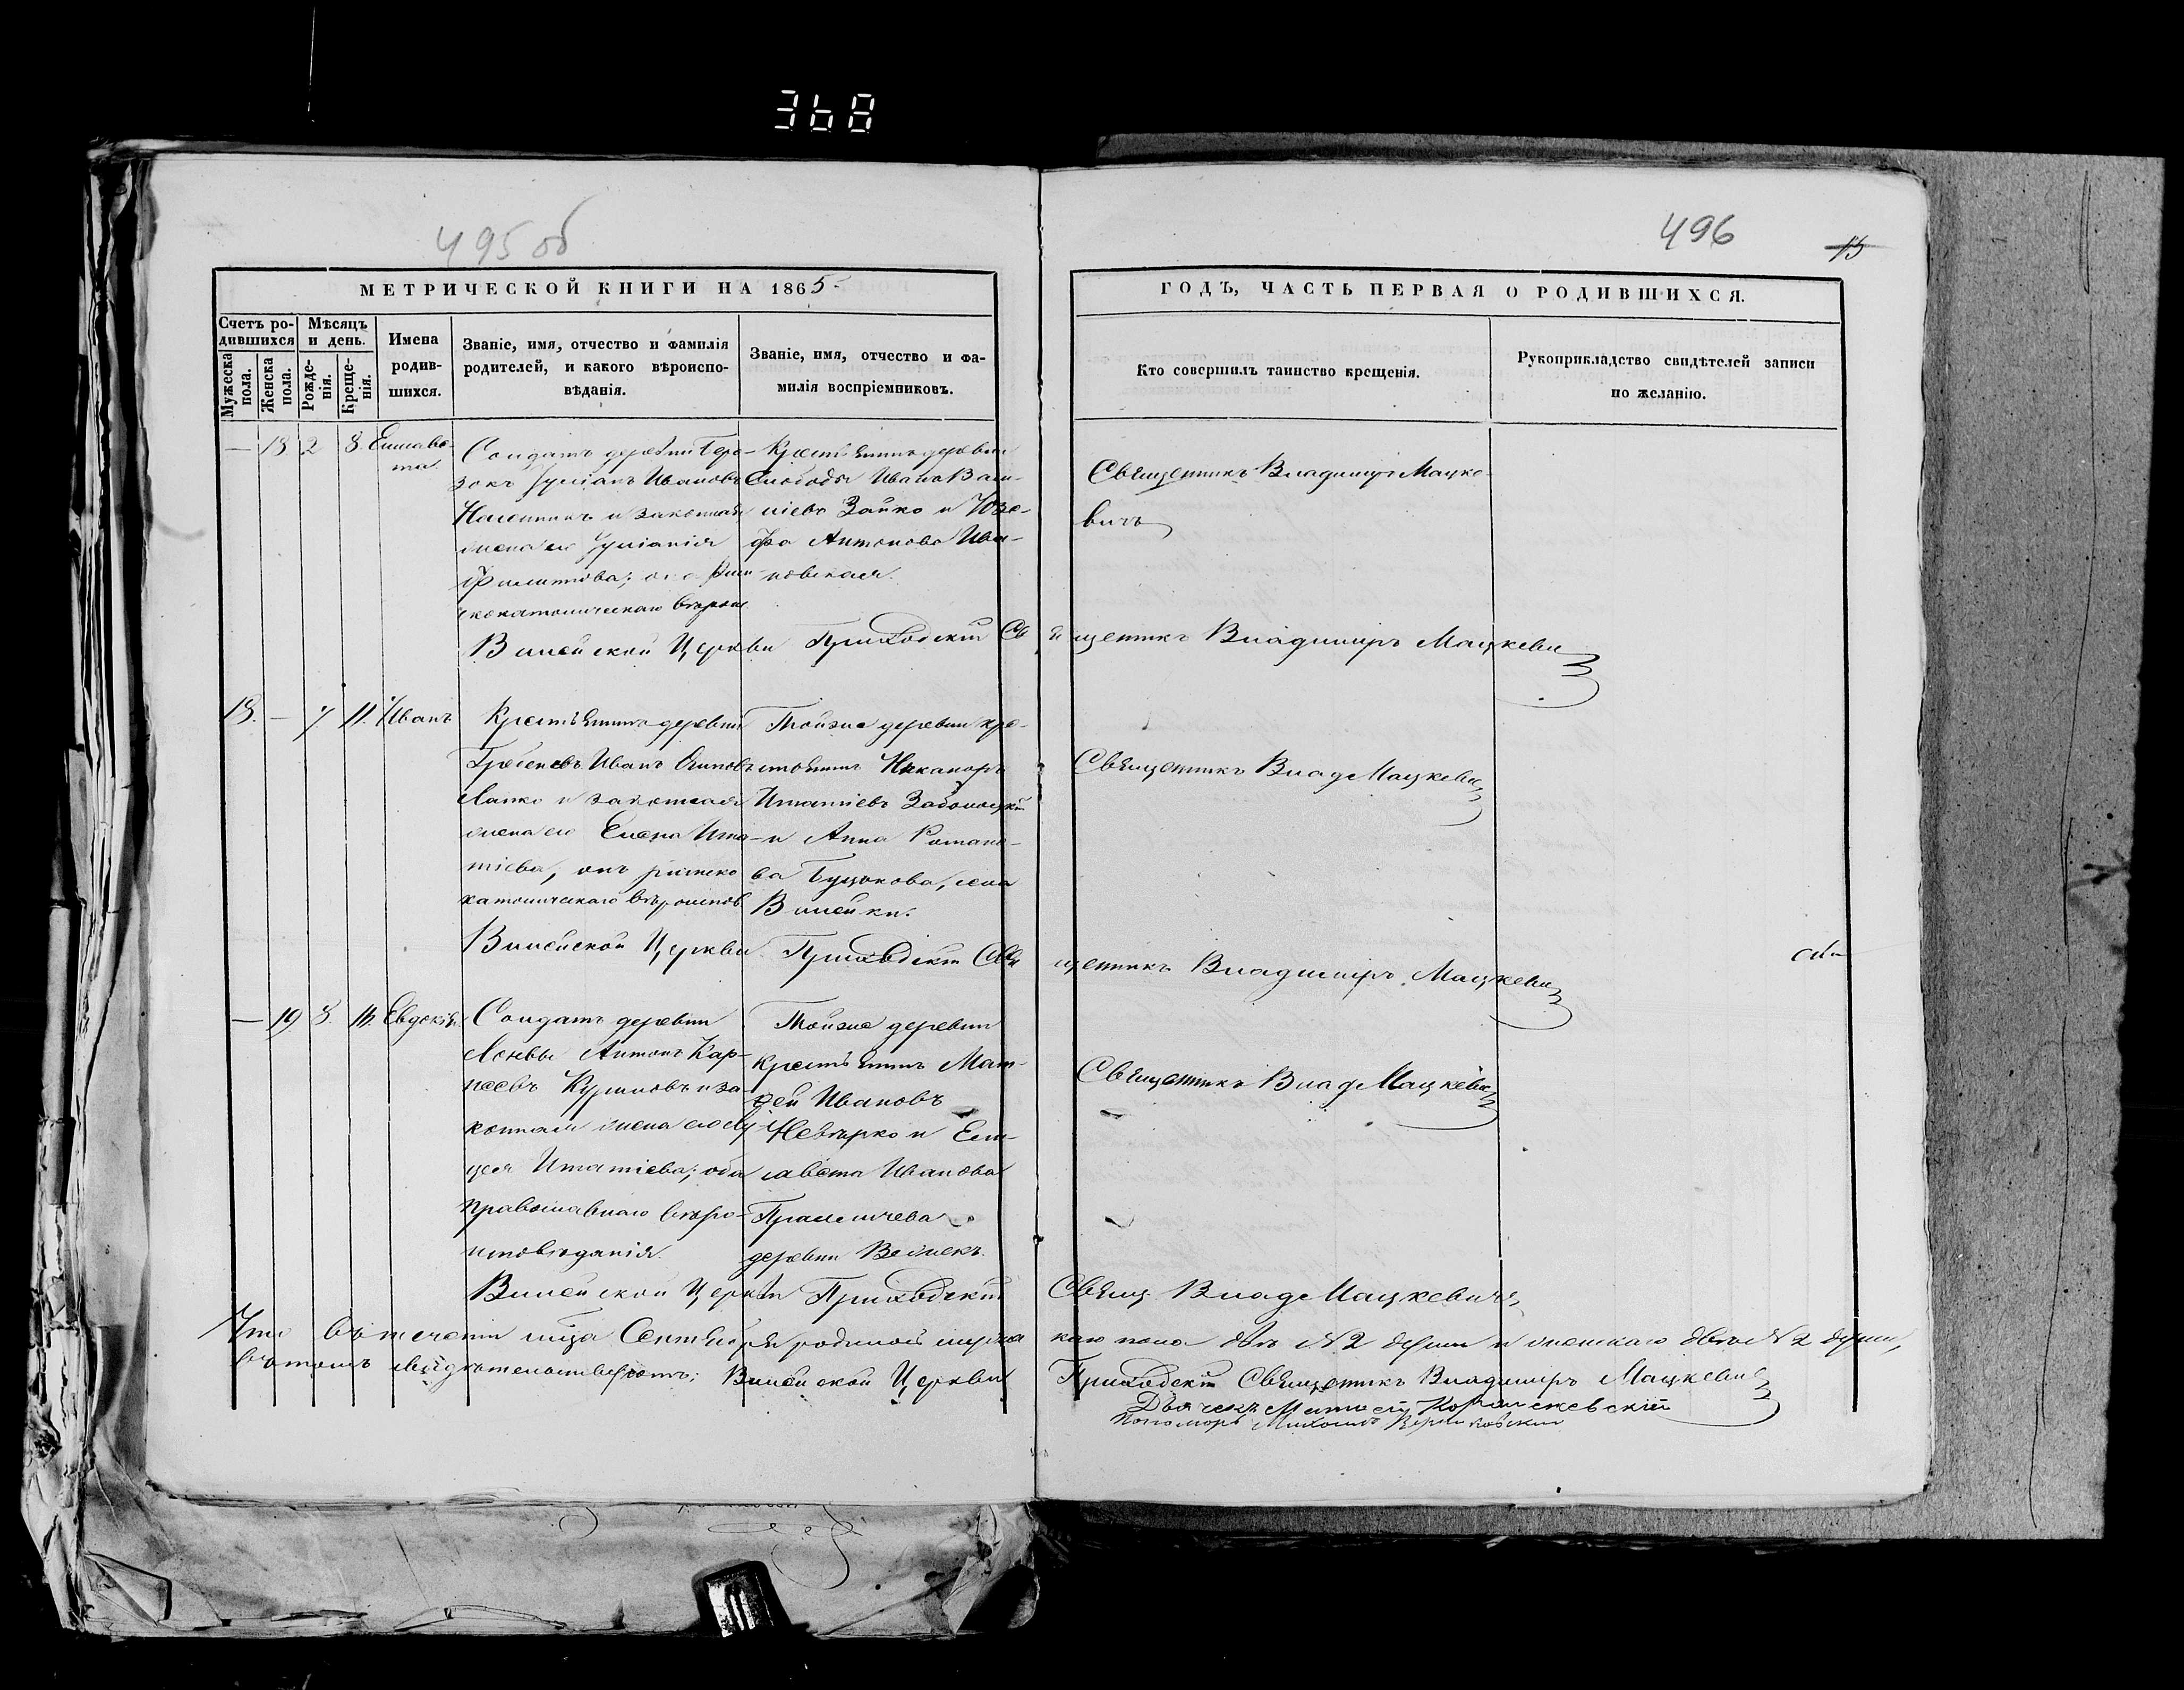 368
495 об
496
15
МЕТРИЧЕСКОЙ КНИГИ НА 1865
ГОДЪ, ЧАСТЬ ПЕРВАЯ О РОДИВШИХСЯ.
Счетъ ро-
дившихся
Мужеска
пола.
Женска
пола.
Мѣсяцъ
и день.
Рожде-
нія.
Креще-
нія.
Имена
родив-
шихся.
Званіе, имя, отчество и фамилія
родителей, и какого вѣроиспо-
вѣданія.
Званіе, имя, отчество и фа-
милія воспріемниковъ.
Кто совершилъ таинство крещенія.
Рукоприкладство свидѣтелей записи
по желанію.
— 18 2 8. Елисаве-
та
Солдатъ деревни Бере-
зокъ Іуліанъ Ивановъ
и законная
жена его Іуліанія
Филиппова; рим-
скокатолическаго вѣроис
Крестьянинъ деревни
Слободы Иванъ Васи-
ліевъ Зайко и Юзе-
фа Антонова Ива-
новская.
Священникъ Владимиръ Мацке-
вичъ
Вилейской Церкви Приходскій Священникъ Владимиръ Мацкевич
18. — 7 11. Иванъ
Крестьянинъ деревни
Гребеневъ Иванъ Осиповъ
Лапко и законная
жена его Елена Игна-
тіева, онъ римско
католическаго вѣроиспов
Тойже деревни кре-
стьянинъ Никаноръ
Игнатіевъ Заболоцкій
и Анна Романо-
ва Буцкова, села
Вилейки.
Священникъ Влад Мацкевич
Вилейской Церкви Приходскій Священникъ Владимиръ Мацкевич
— 19 8. 16. Евдокія
Солдатъ деревни
Антонъ Кар-
пеевъ Куриловъ и за-
конная жена его Лу-
цея Игнатіева; оба
православнаго вѣро-
исповѣданія.
Тойже деревни
крестьянинъ Мат-
фей Ивановъ
и Ели-
савета Иванова
деревни
Священникъ Влад Мацкевич
Вилейской Церкви Приходскій Свящ Влад Мацкевичъ
Что въ теченіи мѣца Сентября родилось мужескаго пола двѣ №2 души и женскаго двѣ №2 души,
въ томъ свидѣтельствуютъ: Вилейской Церкви Приходскій Священникъ Владимиръ Мацкевич
Дьячекъ Матвей
Пономарь Михаилъ